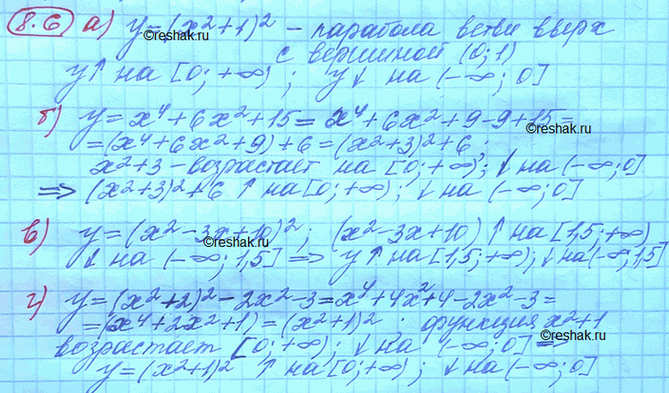 8.6 а) y=(x²+1)² – парабола ветви вверх
с вершиной (0;1)
y↑ на [0;+∞) ; y↓ на (-∞;0]
б) y=x⁴+6x²+15=x⁴+6x²+9-9+15=
=(x⁴+6x²+9)+6=(x²+3)²+6.
x²+3 – возрастает на [0;+∞); ↓ на (-∞;0]
⇒ (x²+3)²+6 ↑ на [0;+∞); ↓ на (-∞;0]
в) y=(x²-3x+10)²; (x²-3x+10) ↑ на [1,5;+∞)
↓ на (-∞;1,5] ⇒ y↑ на [1,5;+∞); ↓ на (-∞;1,5]
г) y=(x²+2)²-2x²-3=x⁴+4x²+4-2x²-3=
=(x⁴+2x²+1)=(x²+1)². функция x²+1
возрастает [0;+∞); ↓ на (-∞;0] ⇒
y=(x²+1)² ↑ на [0;+∞); ↓ на (-∞;0]
©reshak.ru
©reshak.ru
©reshak.ru
©reshak.ru
©reshak.ru